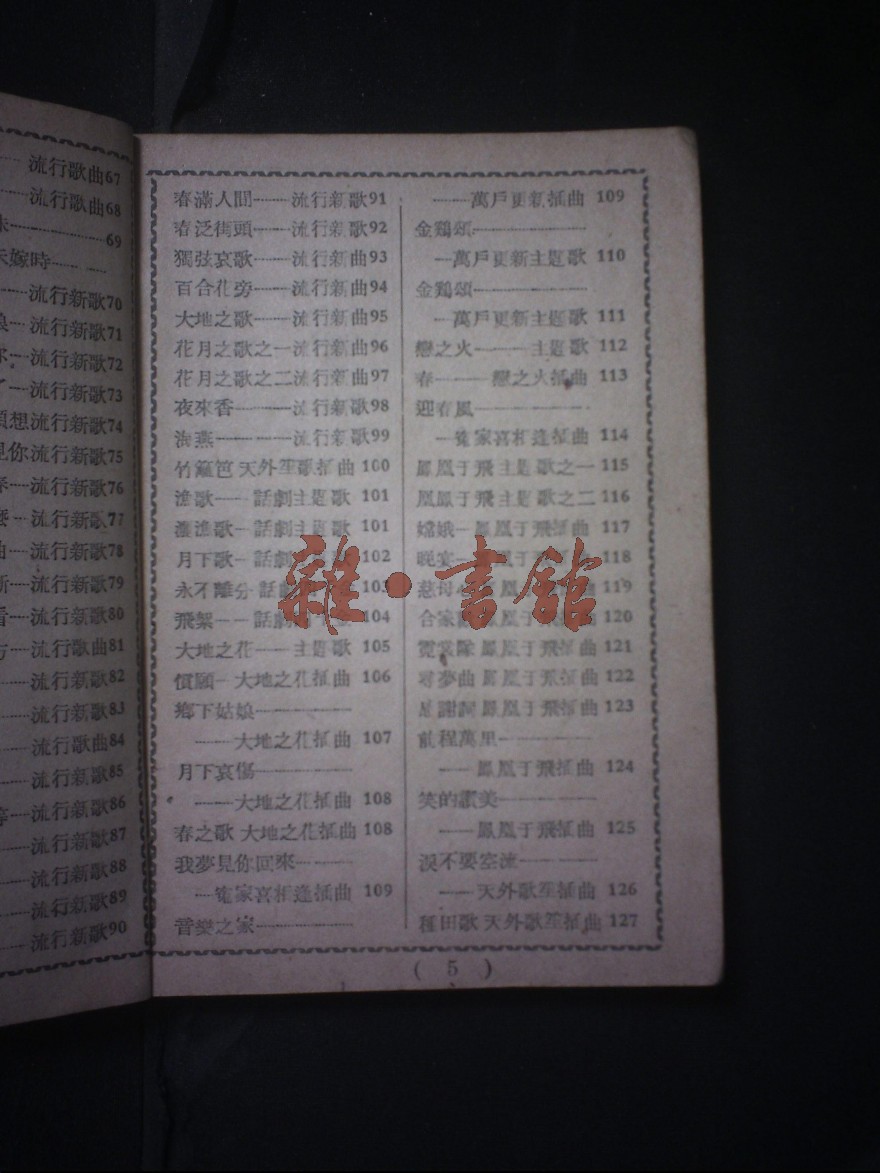 流行歌曲67
流行歌曲68
69
嫁時
流行新歌70
流行新歌71
流行新歌72
流行新歌73
想流行新歌74
你流行新歌75
流行新歌76
流行新歌77
流行新歌78
流行新歌79
流行新歌80
流行歌曲81
流行新歌82
流行新歌83
流行歌曲84
流行新歌85
流行新歌86
流行新歌87
流行新歌88
流行新歌89
流行新歌90
春滿人間……流行新歌91
春泛街頭……流行新歌92
獨弦哀歌……流行新曲93
百合花旁……流行新曲94
大地之歌……流行新曲95
花月之歌之一流行新曲96
花月之歌之二流行新曲97
夜來香………流行新歌98
海燕…………流行新歌99
竹籬笆 天外笙歌插曲 100
漁歌……話劇主題歌 101
漁歌—話劇主題歌 101
月下歌—話劇 102
永不離分 話劇 103
飛絮——話劇 104
大地之花——主題歌 105
償願—大地之花插曲 106
鄉下姑娘…………
……大地之花插曲 107
月下哀傷…………
……大地之花插曲 108
春之歌 大地之花插曲 108
我夢見你回來………
—寃家喜相逢插曲 109
音樂之家…………
……萬戶更新插曲 109
金鷄頌…………
—萬戶更新主題歌 110
金鷄頌…………
—萬戶更新主題歌 111
戀之火———主題歌 112
春———戀之火插曲 113
迎春風…………
—寃家喜相逢插曲 114
鳳凰于飛主題歌之一 115
凰鳳于飛主題歌之二 116
嫦娥—鳳凰于飛插曲 117
晚宴—鳳凰于飛插曲 118
慈母 鳳凰 曲 119
合家 鳳凰于飛 曲 120
霓裳隊 鳳凰于飛插曲 121
尋夢曲 鳳凰于飛插曲 122
謝 鳳凰于飛插曲 123
前程萬里…………
……鳳凰于飛插曲 124
笑的讚美…………
……鳳凰于飛插曲 125
淚不要空流………
……天外歌笙插曲 126
種田歌 天外歌笙插曲 127
( 5 )
雜·書館